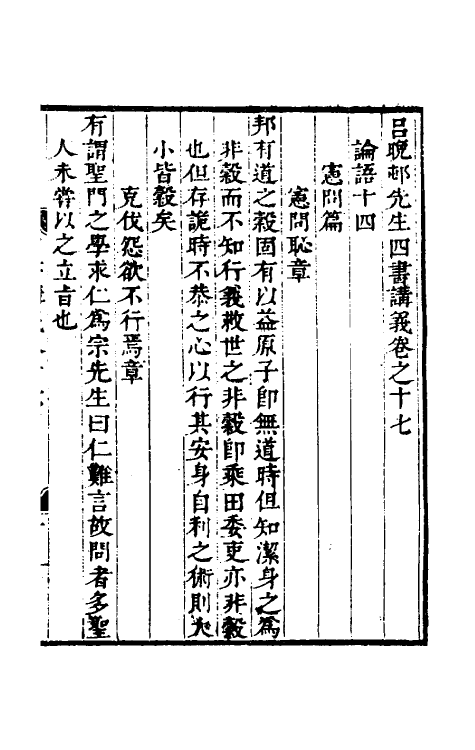 呂晚邨先生四書講義卷之十七
論語十四
憲問篇
憲問恥章
邦有道之穀固有以益原子卽無道時但知潔身之爲
非穀而不知行義救世之非穀卽乘田委吏亦非穀
也但存詭時不恭之心以行其安身自利之術則大
小皆穀矣
克伐怨欲不行焉章
有謂聖門之學求仁爲宗先生曰仁難言故問者多聖
人未嘗以之立旨也